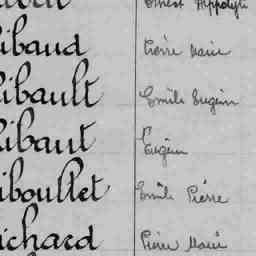 Ernest Hippolyte
ibaud Pierre Marie
ibault Emile Eugène
ibaut Eugène
iboullet Emile Pierre
ichard Pierre Marie